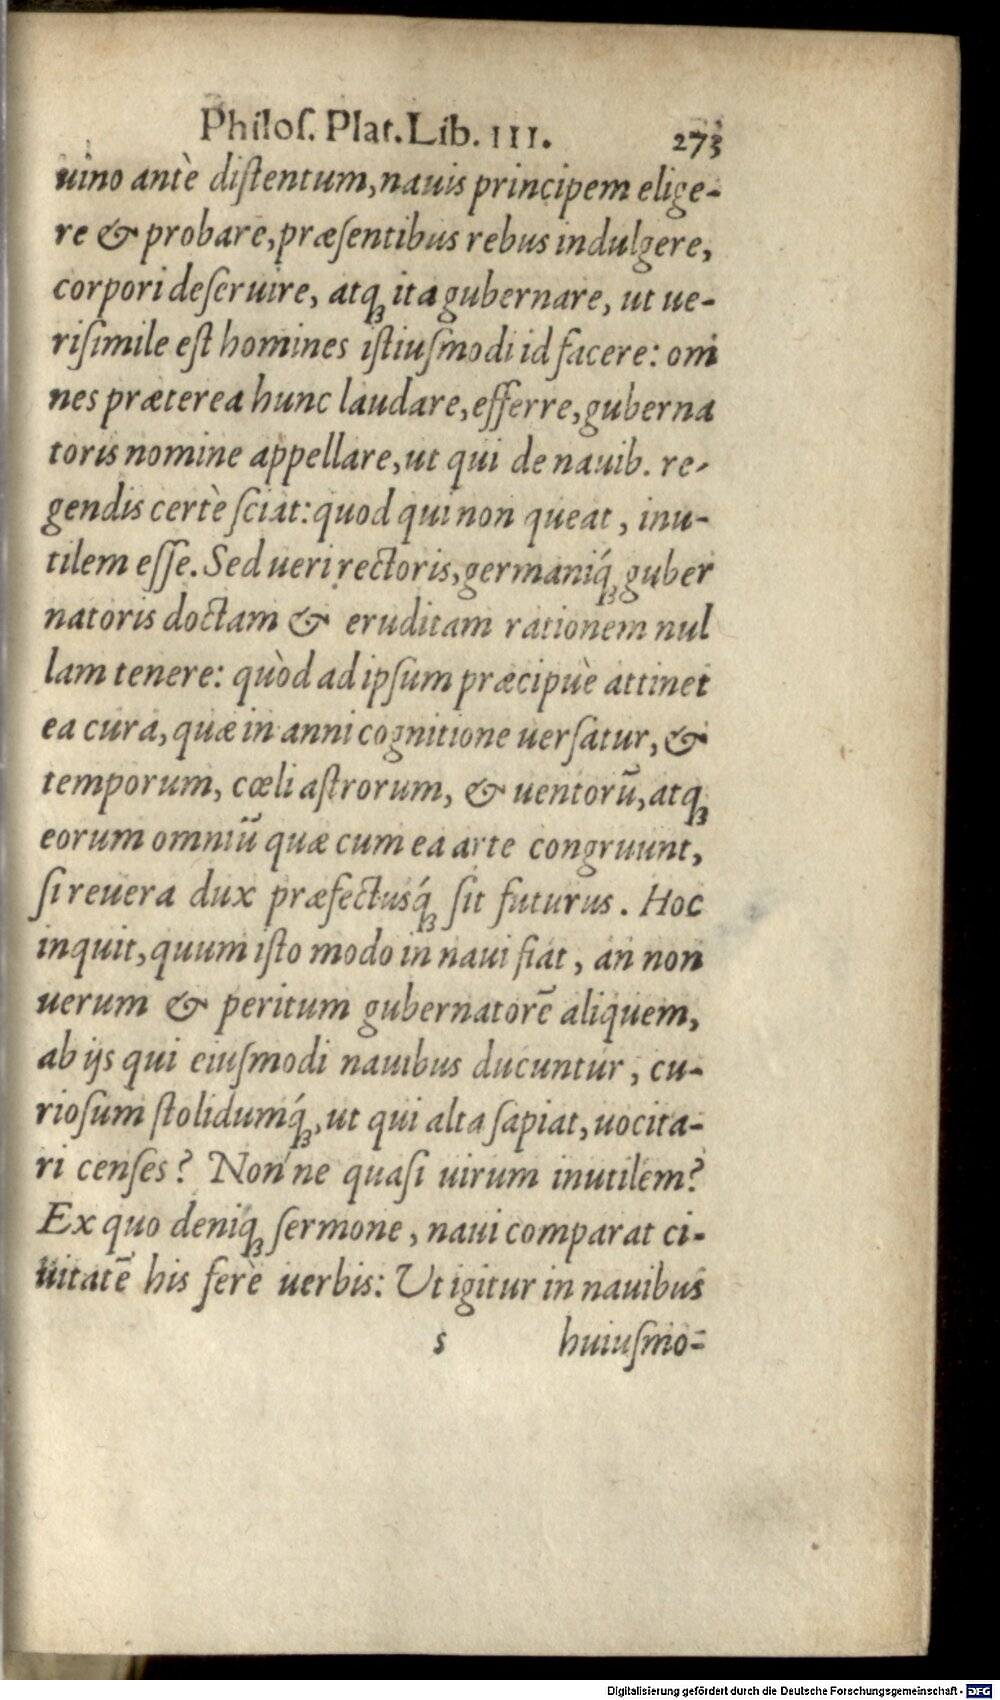 Philoſ. Plat. Lib. III. 273
uino antè diſtentum, nauis principem elige-
re & probare, præſentibus rebus indulgere,
corpori deſeruire, atqꝫ ita gubernare, ut ue-
riſimile eſt homines iſtiuſmodi id facere: om
nes præterea hunc laudare, efferre, guberna
toris nomine appellare, ut qui de nauib. re-
gendis certè ſciat: quod qui non queat, inu-
tilem eſſe. Sed ueri rectoris, germaniq́ꝫ guber
natoris doctam & eruditam rationem nul
lam tenere: quòd ad ipſum præcipuè attinet
ea cura, quæ in anni cognitione uerſatur, &
temporum, cœli aſtrorum, & uentorū, atqꝫ
eorum omniū quæ cum ea arte congruunt,
ſi reuera dux præfectusq́ꝫ ſit futurus. Hoc
inquit, quum iſto modo in naui fiat, an non
uerum & peritum gubernatorē aliquem,
ab ijs qui eiuſmodi nauibus ducuntur, cu-
rioſum ſtolidumq́ꝫ, ut qui alta ſapiat, uocita-
ri cenſes? Non'ne quaſi uirum inutilem?
Ex quo deniqꝫ ſermone, naui comparat ci-
uitatē his ferè uerbis: Ut igitur in nauibus
s huiuſmo-
Digitalisierung gefördert durch die Deutsche Forschungsgemeinschaft - DFG